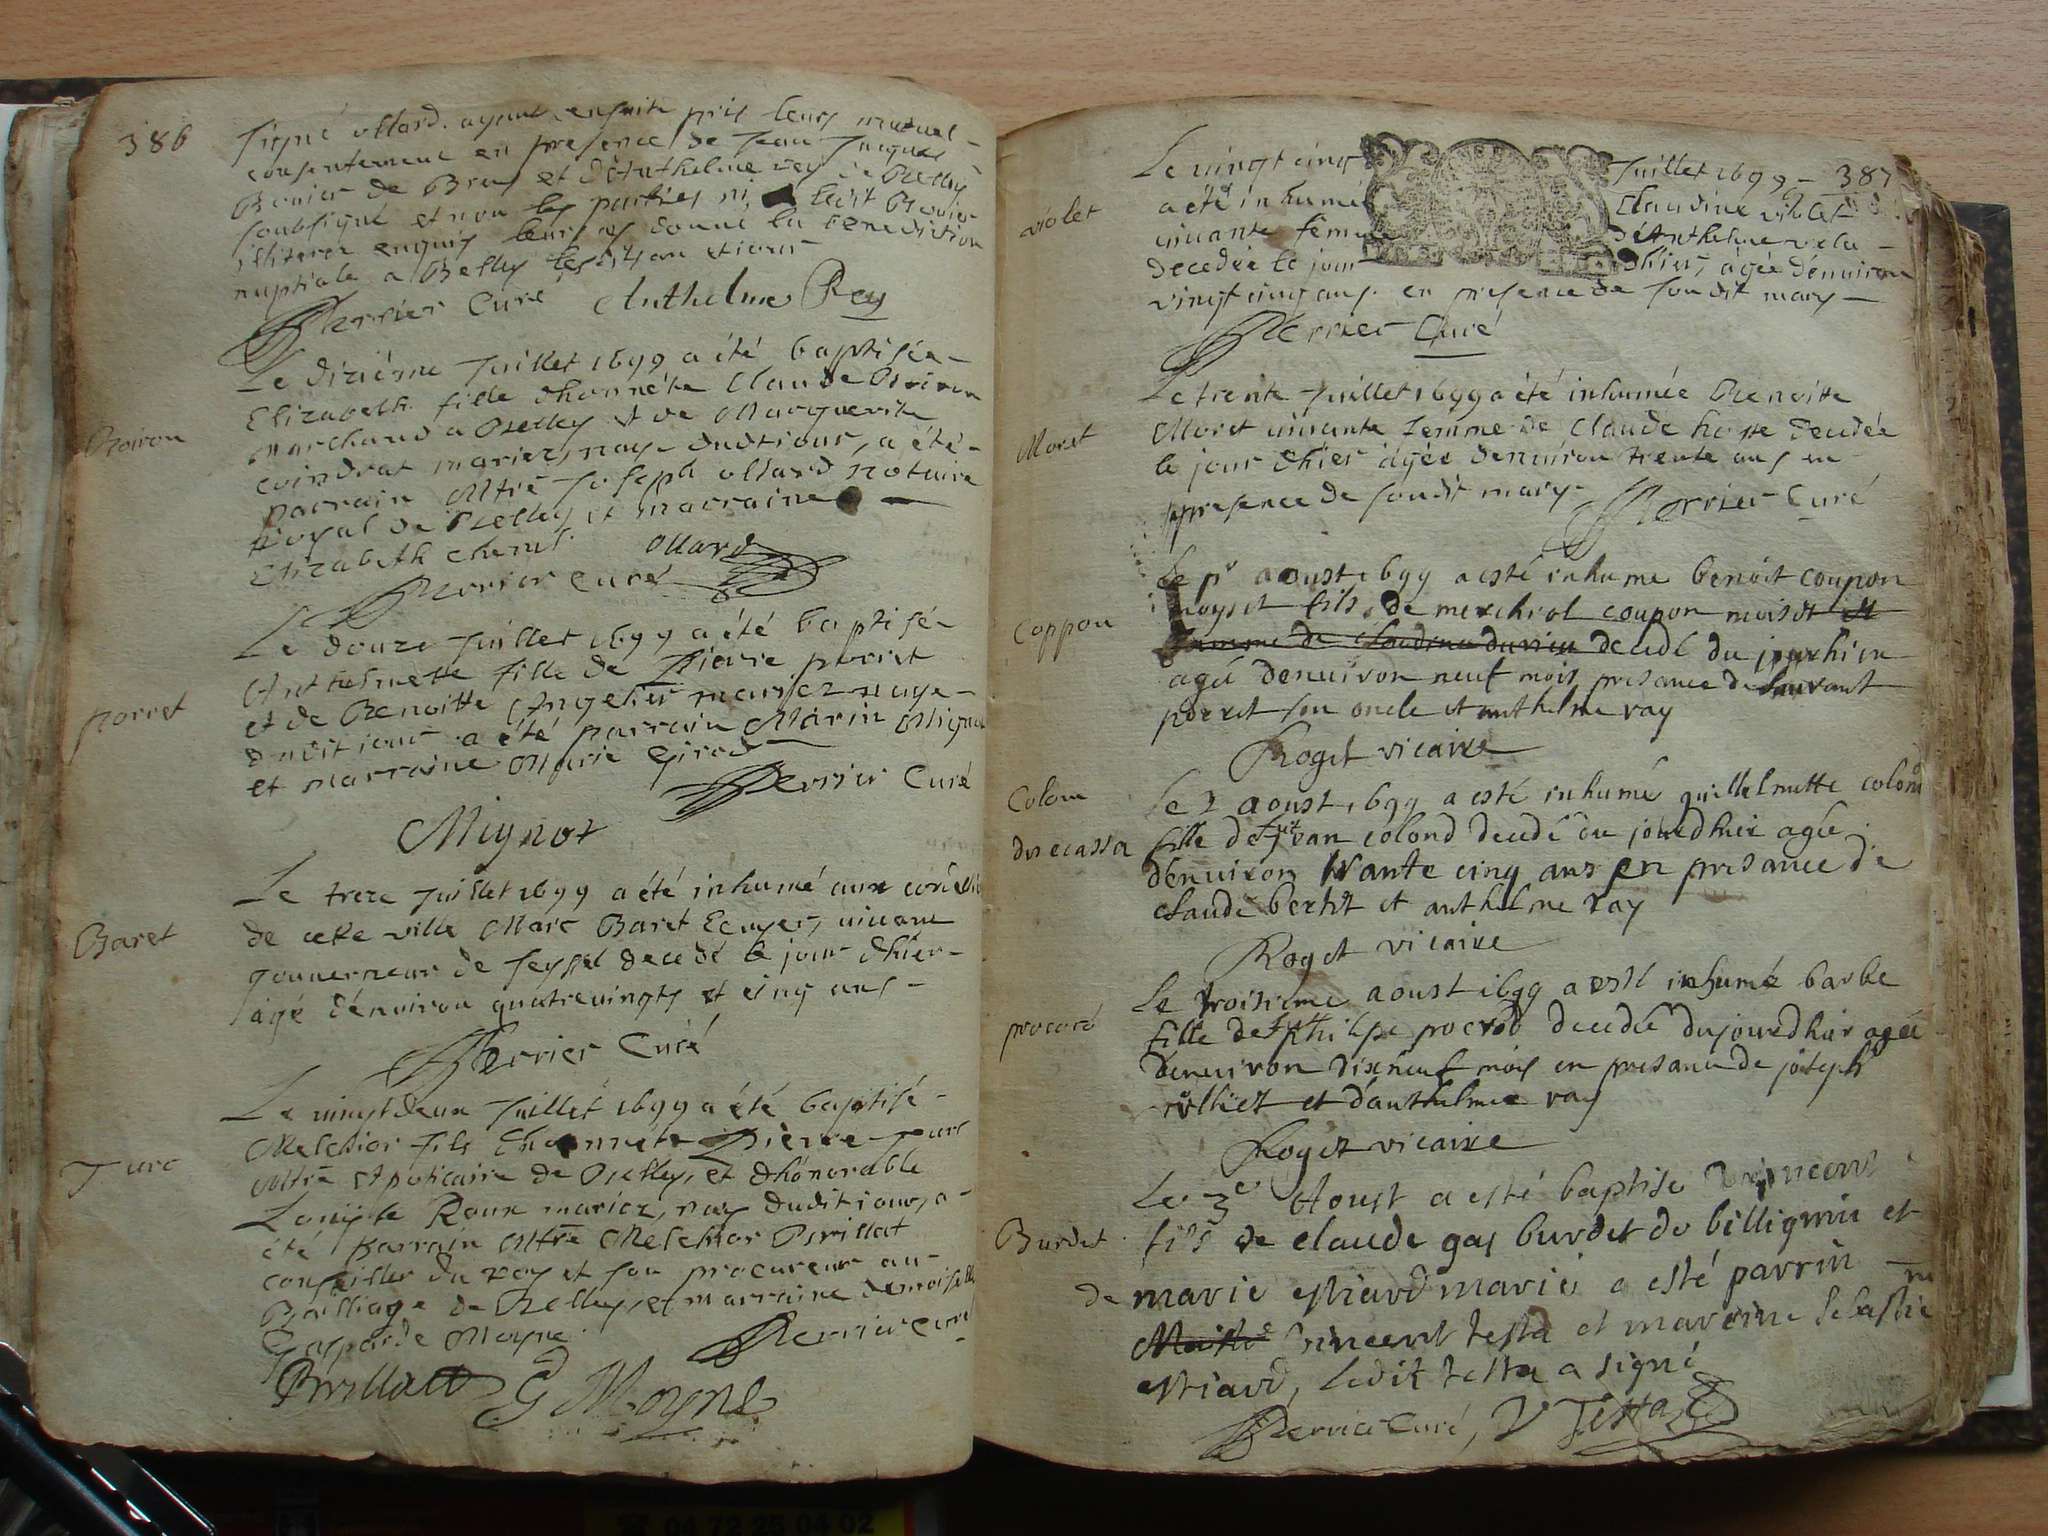 386
signé ollard. ayant ensuite pris leurs mutuel
consentement en presence de Jean Jacques
de Brens et d'Anthelme rey de Belley
soubsigné et non les parties ni ledit
illiterez enquis leurs ay donné la benediction
nuptiale a Belley les dits an et jour
Perrier Curé Anthelme Rey
Boiron
Le dixiéme Juillet 1699 a été baptisée
Elizabeth fille d'honnéte Claude Boiron
Marchand a Belley et de Marguerite
coindrat mariez, nay dudit jour, a été
parrain Mtre Joseph ollard notaire
Royal de Belley et marraine
Elizabeth
Perrier curé ollard
porret
Le douze Juillet 1699 a été baptisé
Anthelmette fille de Pierre porret
et de Benoitte Angelier mariez naye
dudit jour a été parrain Marin Mignot
et marraine Marie Girod
Perrier Curé
Mignot
Baret
Le treze Juillet 1699 a été inhumé aux
de cette ville Marc Baret Ecuyer, vivant
gouverneur de seyssel decedé le jour d'hier
agé d'environ quatrevingts et cinq ans
Perrier Curé
Turc
Le vingtdeux Juillet 1699 a été baptisé
Melchior fils d'honnéte Pierre Turc
Mtre Apoticaire de Belley, et d'hónorable
Louise Roux mariez, nay dudit jour, a
été parrain Mtre Melchior Brillat
conseiller du roy et son procureur au
Bailliage de Belley, et marraine demoiselle
Gasparde Moyne
Perrier curé
Brillatt G Moyne
Le vingt cinq Juillet 1699 387
violet
a été inhumée Claudine violet
vivante femme d'Anthelme
decedée le jour d'hier, agée d'environ
vingt cinq ans. en presence de soudit mary
Perrier Curé
Moret
Le trente Juillet 1699 a été inhumée Benoitte
Moret vivante femme de Claude hoste decedée
le jour d'hier agée denviron trente ans en
presence de soudit mary Perrier Curé
Coppon
Le pr aoust 1699 a esté inhumé benoit coupon
moyset fils de merchiol coupon moiset et
femme de claudine durieu decedé du jourhier
agée denuiron neuf mois presance de
porret son oncle et anthelme ray
Roget vicaire
Colom
ducassa
Le 2 aoust 1699 a esté inhumé guillelmette colond
fille de fut jean colond decedé du jourdhuir agée
denuiron trante cinq ans en presance de
claude bertet et anthelme ray
Roget vicaire
procoro
Le troisieme aoust 1699 a esté inhumé barbe
fille de fut philipe decedée dujourdhuir agée
denuiron dixneuf mois en presance de joseph
et d'anthelme ray
Roget vicaire
Burdet
Le 3e Aoust a esté baptise vincent
fils de claude gay burdet de billignin et
de marie estiard marié a esté parrin
Maitre vincent testa et marrine sebastie
ne
estiard, ledit testa a signé
Perrier Curé, V Testa
04 72 25 04 02